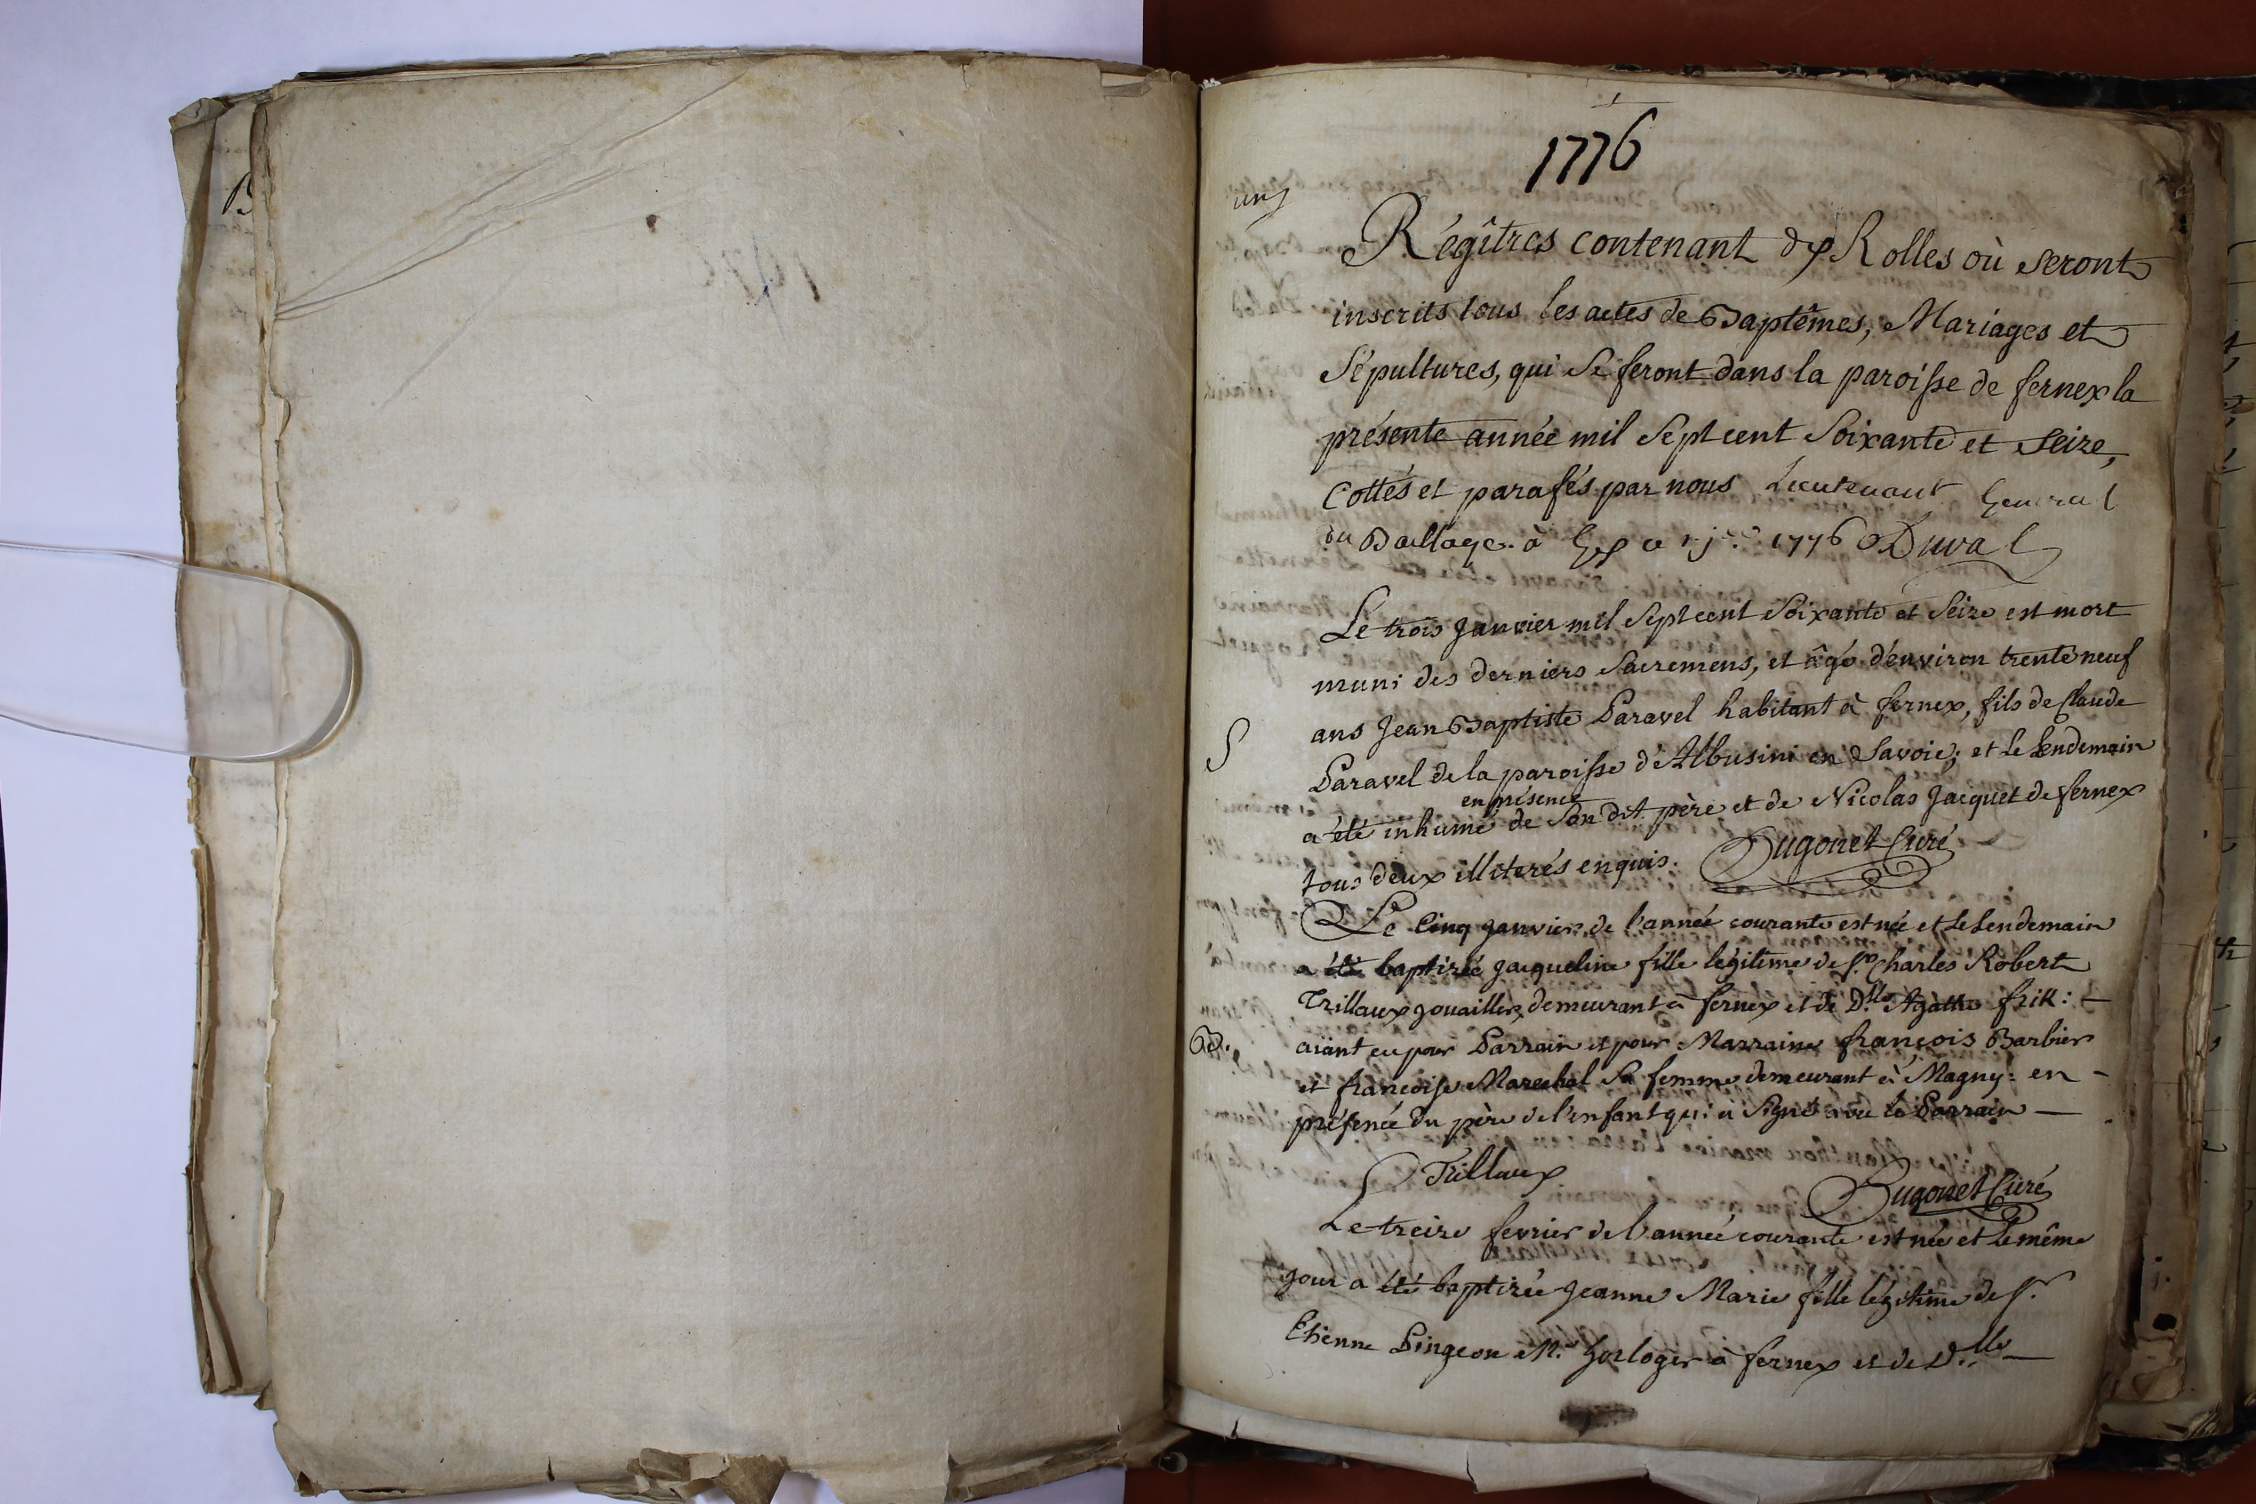 1776
un
Régîtres contenant dix Rolles où seront
inscrits tous les actes de Baptêmes, Mariages et
Sépultures, qui se feront dans la paroisse de fernex la
présente année mil sept cent soixante et seize,
Cottés et parafés par nous Lieutenant General
du Baillage à Gex 1776 Duval
Le trois janvier mil sept cent soixante et seize est mort
muni des derniers sacremens, et âgé d'environ trente neuf
ans Jean Baptiste Paravel habitant à fernex, fils de Claude
S
Paravel de la paroisse d'Albusini en Savoie; et le Lendemain
en présence
a été inhumé de son dit père et de Nicolas Jacquet de fernex
tous deux illiterés enquis. Hugonet Curé
Le Cinq janvier de l'année courante est née et le Lendemain
a été baptizée Jacqueline fille legitime de Sr. Charles Robert
Trillaux jouaillier, demeurant à fernex et de Dlle. Agathe frik: —
B.
aïant eu pour Parrain et pour Marraine françois Barbier
et françoise Marechal sa femme demeurant à Magny: en -
présence du père de l'enfant qui a signé avec le Parrain —
Trillaux
Hugonet Curé
Le treize fevrier de l'année courante est née et le même
jour a été baptizée Jeanne Marie fille légitime de Sr.
Etienne Pingeon Me. horloger à fernex et de Dlle —